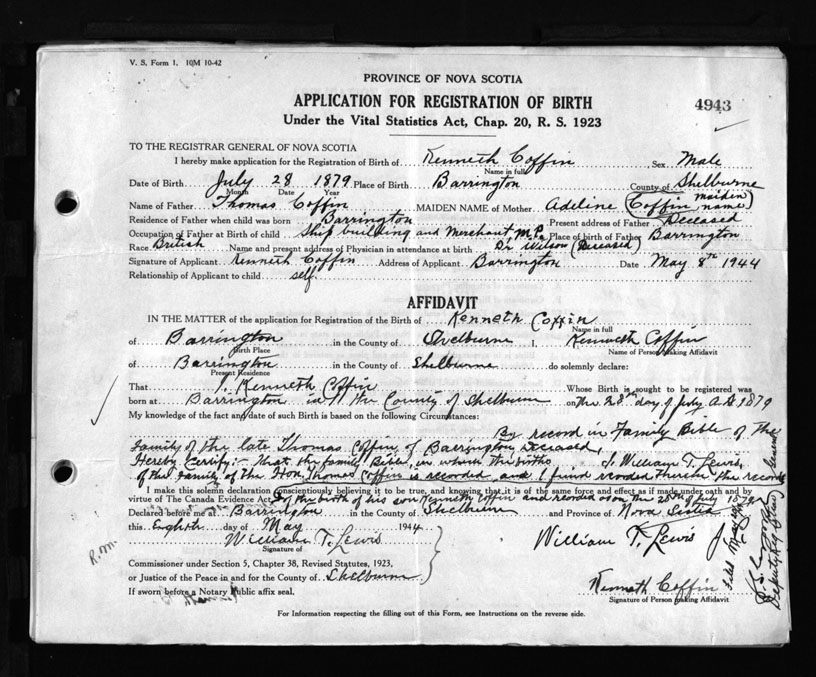 V. S. Form 1. 10M 10-42
PROVINCE OF NOVA SCOTIA
APPLICATION FOR REGISTRATION OF BIRTH
4943
Under the Vital Statistics Act, Chap. 20, R. S. 1923
TO THE REGISTRAR GENERAL OF NOVA SCOTIA
I hereby make application for the Registration of Birth of Kenneth Coffin Sex Male
Name in full
Date of Birth July 28 1879 Place of Birth Barrington County of Shelburne
Month Date Year
Name of Father Thomas Coffin MAIDEN NAME of Mother Adeline (Coffin maiden name)
Residence of Father when child was born Barrington Present address of Father Deceased
Occupation of Father at Birth of child Ship building and Merchant M.P. Place of birth of Father Barrington
Race British Name and present address of Physician in attendance at birth Dr Wilson (Deceased)
Signature of Applicant Kenneth Coffin Address of Applicant Barrington Date May 8th 1944
Relationship of Applicant to child self
AFFIDAVIT
IN THE MATTER of the application for Registration of the Birth of Kenneth Coffin
Name in full
of Barrington in the County of Shelburne I, Kenneth Coffin
Birth Place Name of Person Making Affidavit
of Barrington in the County of Shelburne do solemnly declare:
Present Residence
That I, Kenneth Coffin Whose Birth is sought to be registered was
born at Barrington in the County of Shelburne on the 28th day of July A.D 1879
My knowledge of the fact and date of such Birth is based on the following Circumstances:
By record in Family Bible of the
family of the late Thomas Coffin of Barrington Deceased,
Hereby Certify:- That the family Bible in which the births I, William T. Lewis,
of the family of the Hon. Thomas Coffin is recorded and I find recorded therein the record
I make this solemn declaration conscientiously believing it to be true, and knowing that it is of the same force and effect as if made under oath and by
virtue of The Canada Evidence Act. of the birth of his son Kenneth Coffin and recorded as on the 28th of July 1879
Declared before me at Barrington in the County of Shelburne and Province of Nova Scotia
this Eighth day of May 1944
William T. Lewis William T. Lewis J.P.
Signature of
R.M.
Commissioner under Section 5, Chapter 38, Revised Statutes, 1923,
or Justice of the Peace in and for the County of Shelburne
Kenneth Coffin
If sworn before a Notary Public affix seal. Signature of Person making Affidavit
For Information respecting the filling out of this Form, see Instructions on the reverse side.
Deputy Reg General